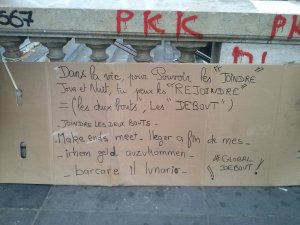 567
PKK
PK
Dans la vie, pour Pouvoir les "JOINDRE"
Jour et Nuit, tu peux les "REJOINDRE"
= (les deux bouts, Les "DEBOUT")
- JOINDRE LES DEUX BOUTS -
- Make ends meet - llegar a fin de mes -
- irhem geld auszukommen -
- barcare il lunario -
#GLOBAL
DEBOUT!